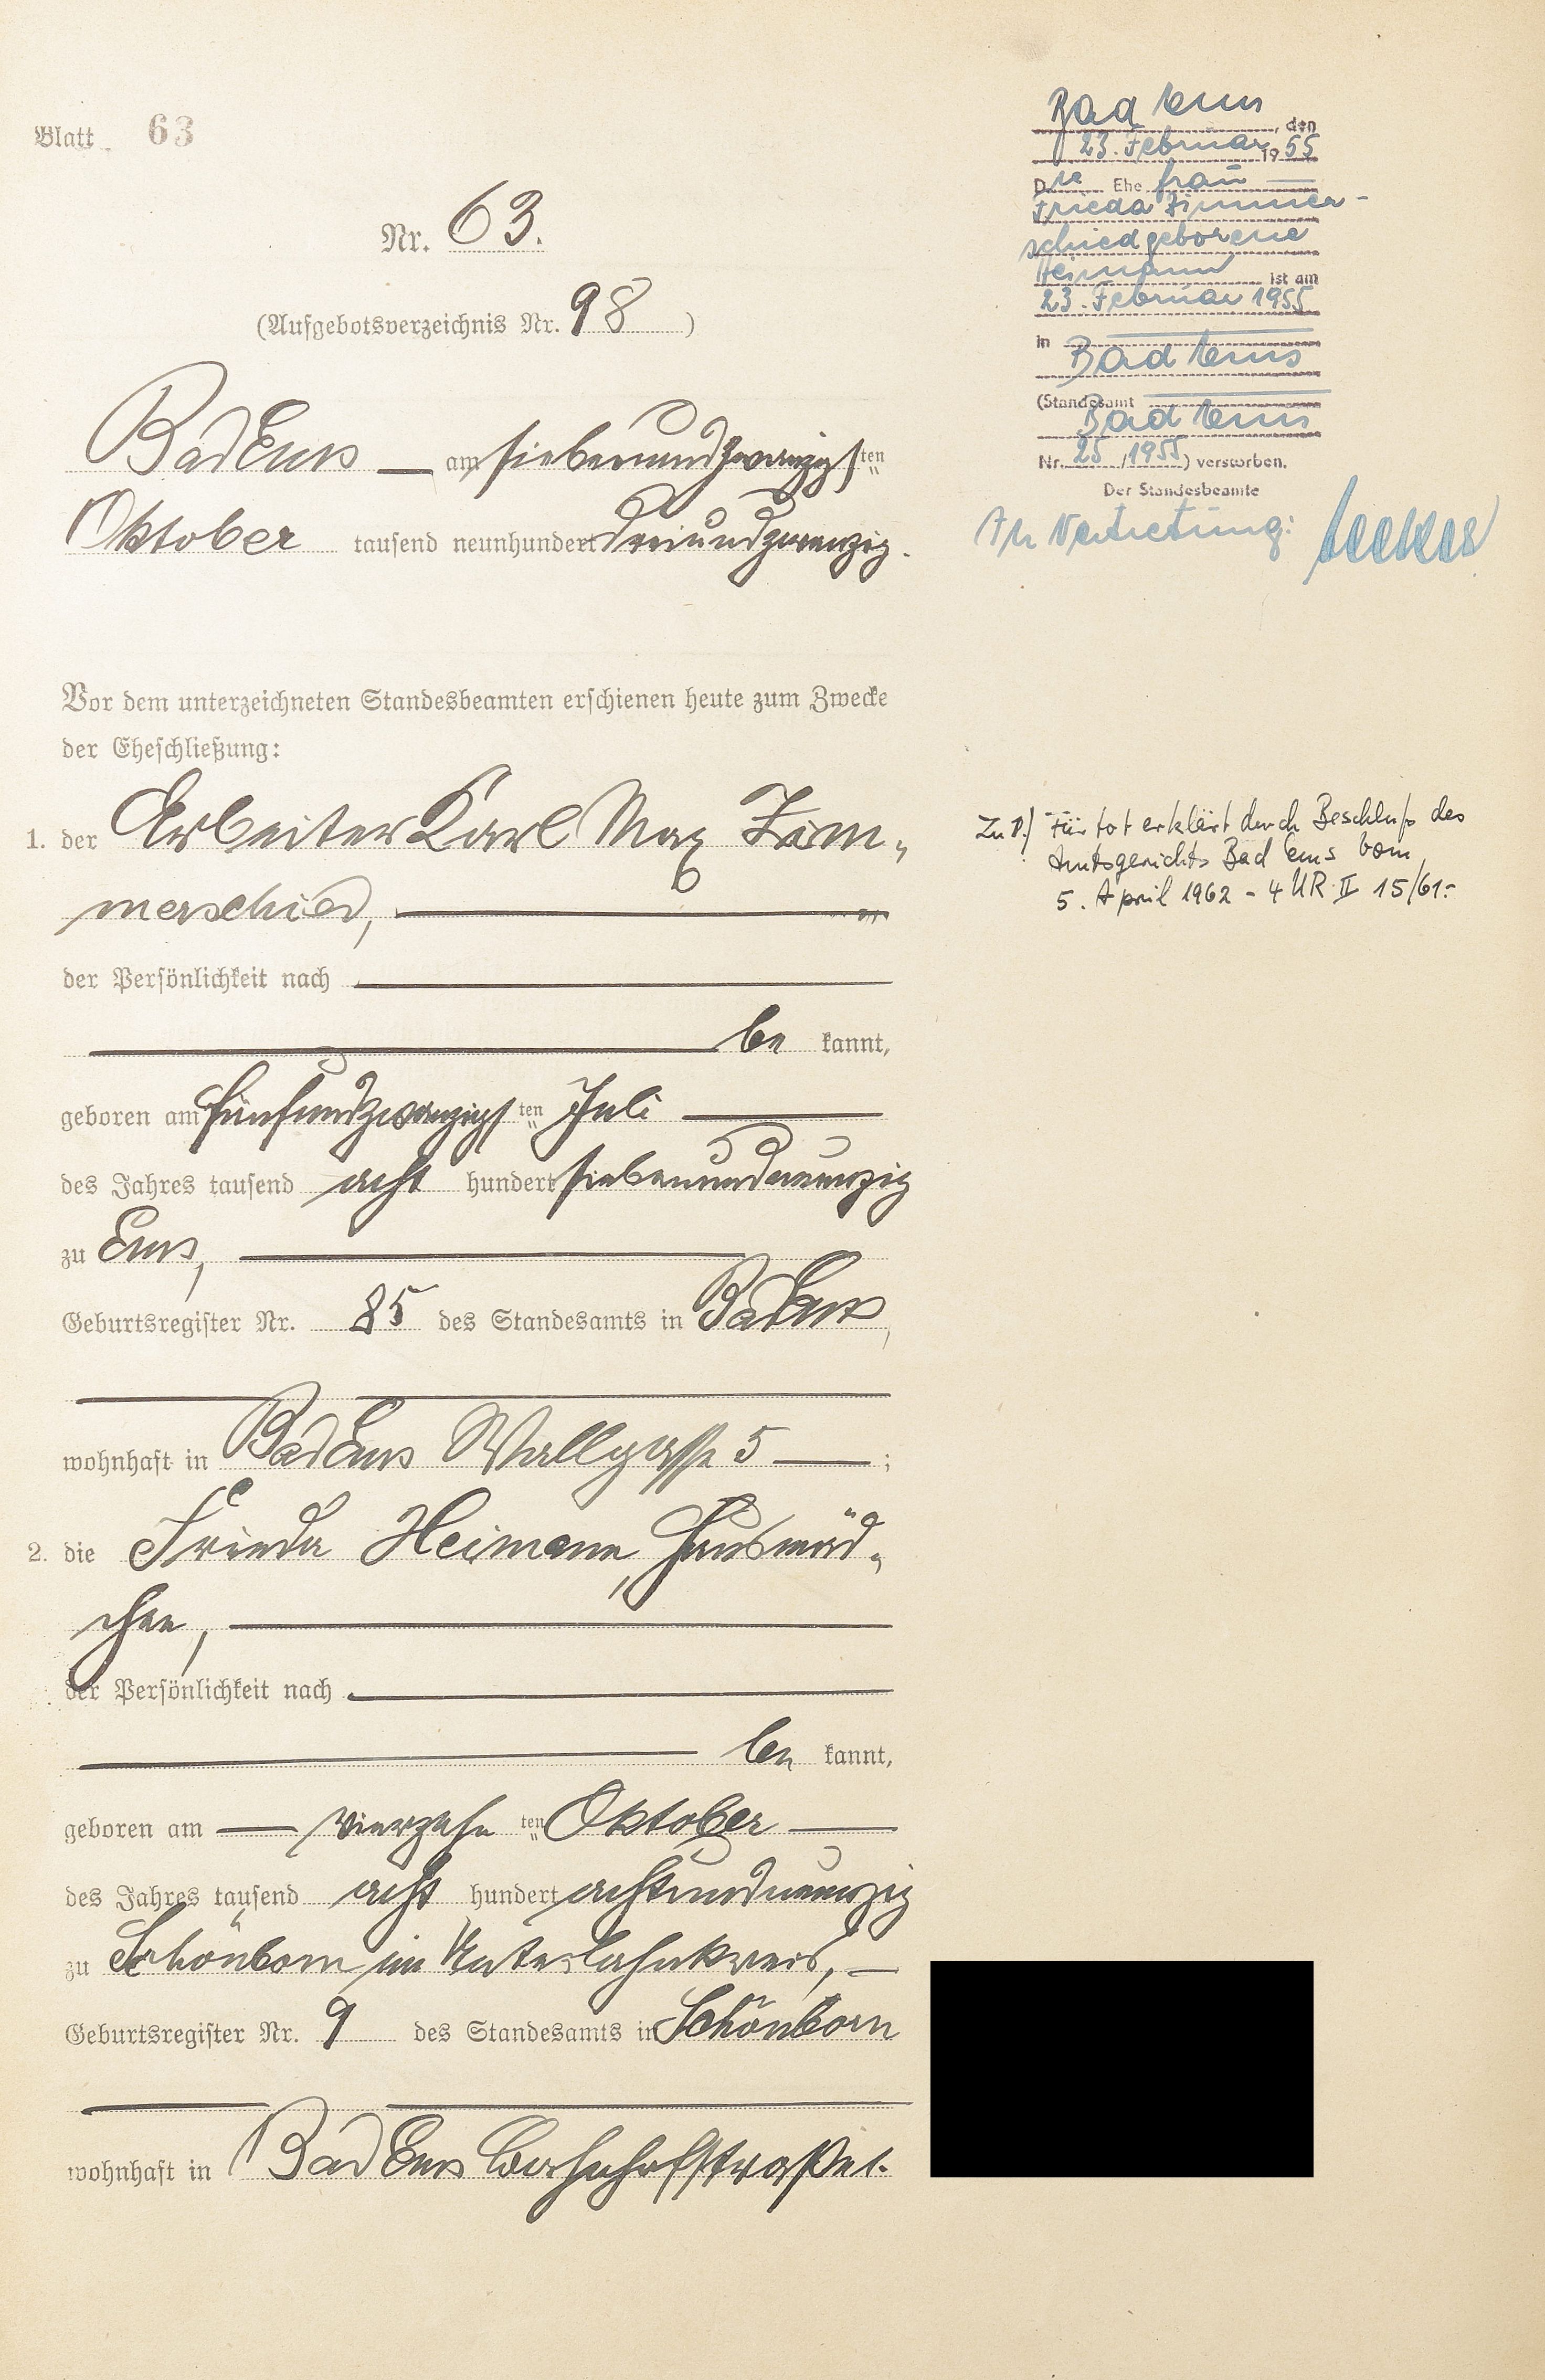 Blatt 63
Nr. 63.
(Aufgebotsverzeichnis Nr. 98)
Bad Ems — am siebenundzwanzigsten
Oktober tausend neunhundert dreiundzwanzig.
Vor dem unterzeichneten Standesbeamten erschienen heute zum Zwecke
der Eheschließung:
1. der Arbeiter Karl Max Zim-
merschied,
der Persönlichkeit nach
be kannt,
geboren am fünfundzwanzigsten Juli
des Jahres tausend acht hundert siebenundneunzig
zu Ems,
Geburtsregister Nr. 85 des Standesamts in Bad Ems,
wohnhaft in Bad Ems Wallgasse 5 — ;
2. die Frieda Heimann, Hausmäd-
chen,
der Persönlichkeit nach
be kannt,
geboren am — vierzehnten Oktober —
des Jahres tausend acht hundert achtundneunzig
zu Schönborn im Unterlahnkreis, —
Geburtsregister Nr. 9 des Standesamts in Schönborn
wohnhaft in Bad Ems Bahnhofstraße 1.
Bad Ems, den
23. Februar 1955
Die Ehefrau —
Frieda Zimmer-
schied geborene
Heimann ist am
23. Februar 1955
in
Bad Ems
(Standesamt
Bad Ems
Nr. 25/1955) verstorben.
Der Standesbeamte
In Vertretung:
Zu 1.) Für tot erklärt durch Beschluß des
Amtsgerichts Bad Ems vom
5. April 1962 - 4 UR II 15/61-